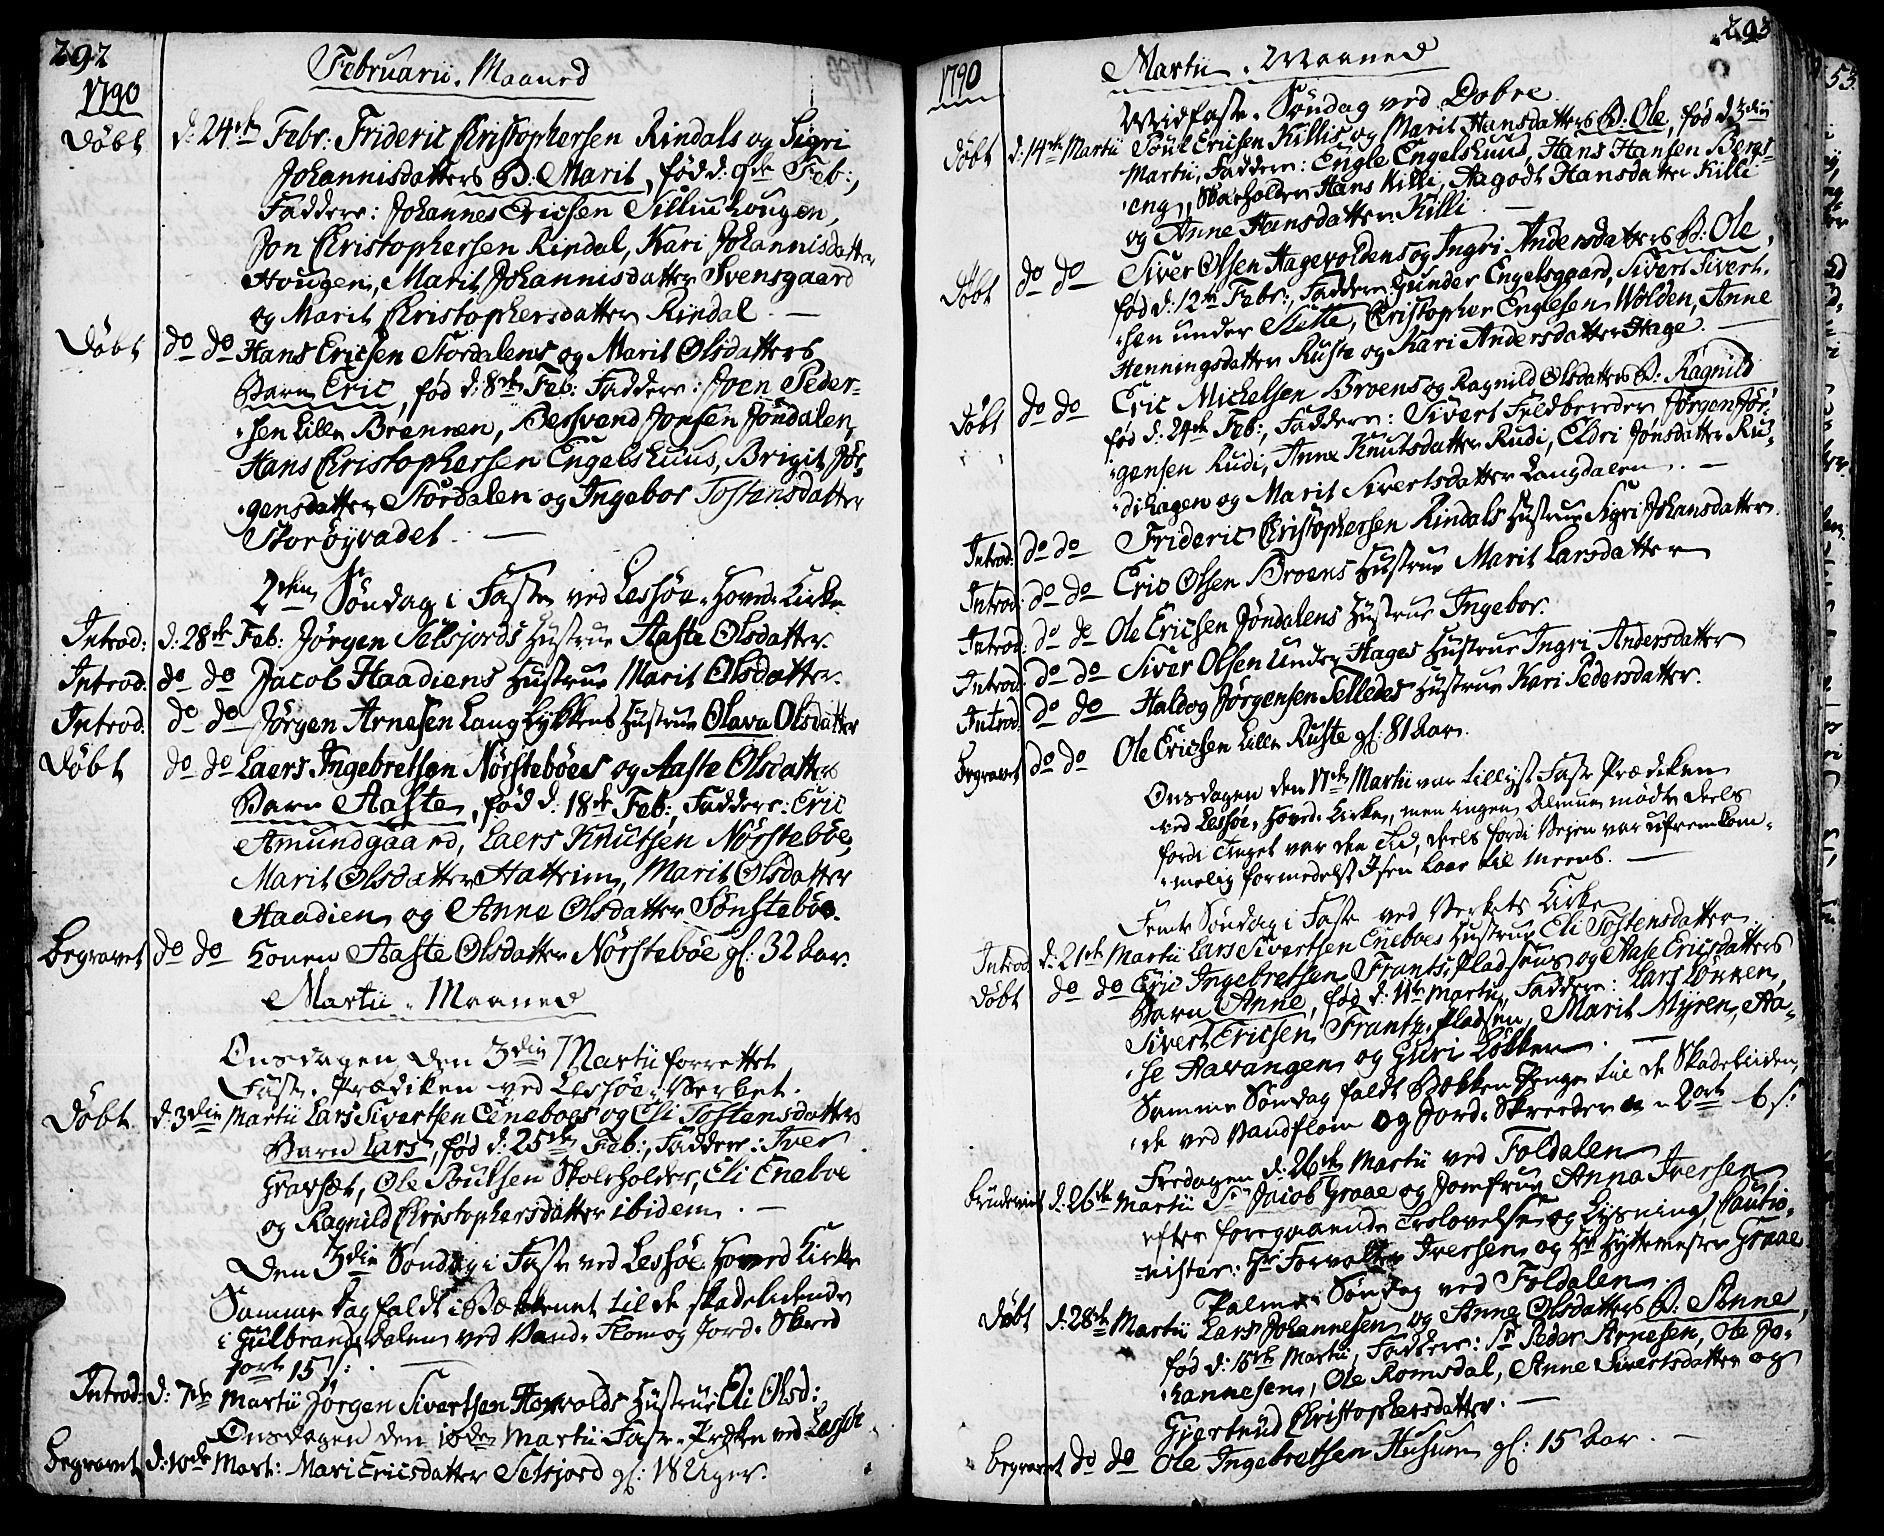 292
1790
Februarii Maaned
Døbt d: 24de Febr: Frideric Christophersen Rindals og Sigri
Johannisdatters B: Marit, fød d: 9de Feb:,
Faddere: Johannes Ericsen Silliuhougen,
Jon Christophersen Rindal, Kari Johannisdatter
Hougen, Marit Johannisdatter Svensgaard
og Marit Christophersdatter Rindal. —
Døbt do do Hans Ericsen Stordalens og Marit Olsdatters
Barn Eric, fød d: 8de Feb: Faddere: Joen Peder-
sen Lille Brennen, Besvend Jonsen Jøndalen,
Hans Christophersen Engelshuus, Brigit Jør-
gensdatter Stordalen og Ingebor Tostensdatter
Storøyvadet. —
2den Søndag i Faste ved Lessøe Hoved Kirke
Introd: d: 28de Feb: Jørgen Selsjords Hustrue Aaste Olsdatter.
Introd: do do Jacob Haadiens Hustrue Marit Olsdatter.
Introd: do do Jørgen Arnesen Langlykkens Hustrue Olava Olsdatter
Døbt do do Laers Ingebretsen Nørstebøes og Aaste Olsdatters
Barn Aaste, fød d: 18de Feb:, Faddere: Eric
Amundgaard, Laers Knutsen Nørstebøe,
Marit Olsdatter Hattrem, Marit Olsdatter
Haadien og Anne Olsdatter Sønstebøe.
Begravet do do Konen Aaste Olsdatter Nørstebøe gl: 32 Aar.
Martii Maaned
Onsdagen den 3die Martii forrettet
Faste-Prædiken ved Lessøe-Verket.
Døbt d: 3die Martii Lars Sivertsen Eneboes og Eli Tostensdatters
Barn Lars, fød d: 25de Feb:, Faddere: Iver
Gravset, Ole Poulsen Skoleholder, Eli Eneboe
og Ragnild Christophersdatter ibidem. —
Den 3die Søndag i Faste ved Lessøe Hoved Kirke
Samme Dag faldt i Bekkenet til de skadelidende
i Gulbrandsdalen ved Vand-Flom og Jord-Skred
1ort 15 s:
Introd: d: 7de Martii Jørgen Sivertsen Horvolds Hustrue Eli Olsd:
Onsdagen den 10de Martii Faste-Præken ved Lessøe
Begravet d: 10de Mart: Mari Ericsdatter Selsjord gl: 18 Uger.
293
1790
Martii Maaned
Midfaste-Søndag ved Dovre
Døbt d: 14de Martii Poul Ericsen Killies og Marit Hansdatters B: Ole, fød d: 3die
Martii, Faddere: Engle Engelshuus, Hans Hansen Bergs-
eng, Skoeholder Hans Killi, Aagodt Hansdatter Killi
og Anne Hansdatter Killi. —
Døbt do do Siver Olsen Hagevoldens og Ingri Andersdatters B: Ole,
fød d: 12te Febr:, Faddere Gunder Engelsgaard, Sivert Sivert-
sen under Slette, Christopher Englesen Wolden, Anne
Henningsdatter Ruste og Kari Andersdatter Hage. —
Døbt do do Eric Michelsen Broens og Ragnild Olsdatters B: Ragnild
fød d: 24de Feb:, Faddere: Sivert Feldbereder, Jørgen Jør-
gensen Rudi, Anne Knutsdatter Rudi, Eldri Jonsdatter Ru-
dihagen og Marit Sivertsdatter Langdalen. —
Introd: do do Frideric Christophersen Rindals Hustrue Sigri Johansdatter.
Introd: do do Eric Olsen Broens Hustrue Marit Larsdatter
Introd: do do Ole Ericsen Jøndalens Hustrue Ingebor.
Introd: do do Siver Olsen Under Hages Hustrue Ingri Andersdatter
Introd: do do Haldog Jørgensen Selledes Hustrue Kari Pedersdatter.
Begravet do do Ole Ericsen Lille Ruste gl: 81 Aar.
Onsdagen den 17de Martii var tillyst Faste Prædiken
ved Lessøe-Hoved-Kirke, men ingen Almue mødte deels
fordi Tinget var den Tid, deels fordi Veyen var ufremkom-
melig formedelst Isen laae til Meens. —
Femte Søndag i Faste ved Verkets Kirke
Introd d: 21de Martii Lars Sivertsen Eneboes Hustrue Eli Tostensdatter.
Døbt do do Eric Ingebretsen Frants-Pladsens og Aase Ericsdatters
Barn Anne, fød d: 11te Martii, Faddere: Lars Lønnen,
Sivert Ericsen Frantz-Pladsen, Marit Myren, Aa-
se Aavangen og Guri Løkken. —
Samme Søndag faldt Bekken Penge til de Skadeliden-
de ved Vandflom og Jord-Skreeder - 2ort 6 s:
Fredagen d: 26de Martii ved Foldalen
Brudeviet d: 26de Martii Sr Jacob Graae og Jomfrue Anna Iversen
efter foregaaende Trolovelse og Lysning, Cautio-
nister: Hr Forvalter Iversen og Hr Hyttemester Graae
Palme-Søndag ved Foldalen
Døbt d: 28de Martii Lars Johannesen og Anne Olsdatters B: Sønne,
fød d: 15de Martii, Faddere: Sr Peder Arnesen, Ole Jo-
hannesen, Ole Romsdal, Anne Sivertsdatter og
Giertrud Christophersdatter. —
Begravet do do Ole Ingebretsen Husum gl: 15 Aar. —